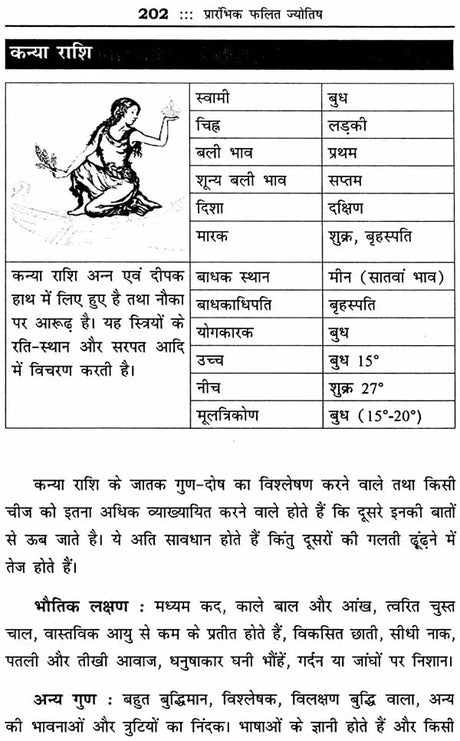 202 ::: प्रारंभिक फलित ज्योतिष
कन्या राशि
स्वामी बुध
चिह्न लड़की
बली भाव प्रथम
शून्य बली भाव सप्तम
दिशा दक्षिण
मारक शुक्र, बृहस्पति
कन्या राशि अन्न एवं दीपक
हाथ में लिए हुए है तथा नौका
पर आरूढ़ है। यह स्त्रियों के
रति-स्थान और सरपत आदि
में विचरण करती है।
बाधक स्थान मीन (सातवां भाव)
बाधकाधिपति बृहस्पति
योगकारक बुध
उच्च बुध 15°
नीच शुक्र 27°
मूलत्रिकोण बुध (15°-20°)
कन्या राशि के जातक गुण-दोष का विश्लेषण करने वाले तथा किसी
चीज को इतना अधिक व्याख्यायित करने वाले होते हैं कि दूसरे इनकी बातों
से ऊब जाते है। ये अति सावधान होते हैं किंतु दूसरों की गलती ढूंढ़ने में
तेज होते हैं।
भौतिक लक्षण : मध्यम कद, काले बाल और आंख, त्वरित चुस्त
चाल, वास्तविक आयु से कम के प्रतीत होते हैं, विकसित छाती, सीधी नाक,
पतली और तीखी आवाज, धनुषाकार घनी भौंहें, गर्दन या जांघों पर निशान।
अन्य गुण : बहुत बुद्धिमान, विश्लेषक, विलक्षण बुद्धि वाला, अन्य
की भावनाओं और त्रुटियों का निंदक। भाषाओं के ज्ञानी होते हैं और किसी